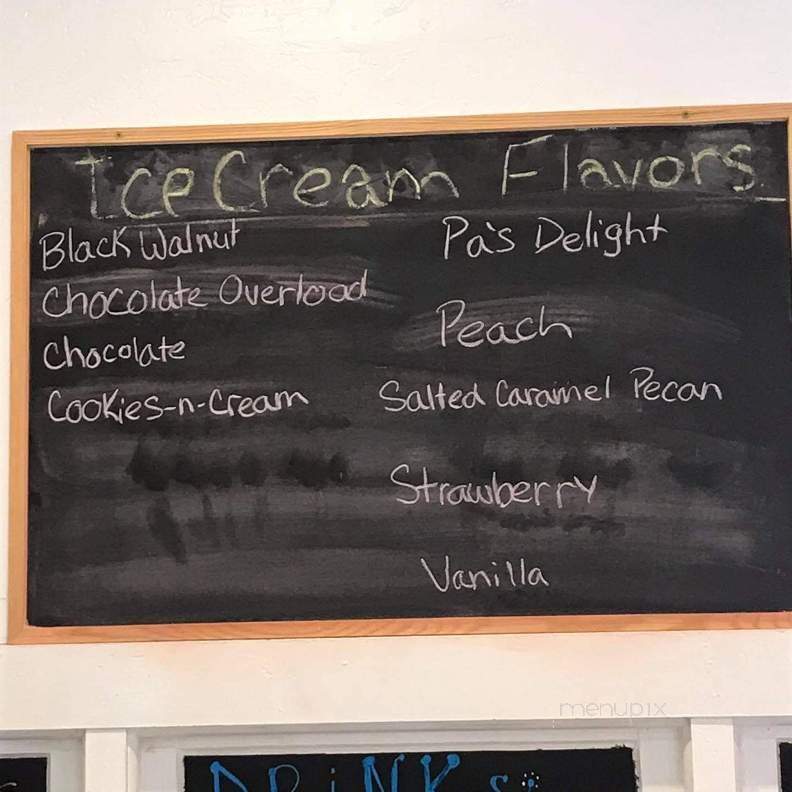 Ice Cream Flavors
Black Walnut
Chocolate Overload
Chocolate
Cookies-n-Cream
Pa's Delight
Peach
Salted Caramel Pecan
Strawberry
Vanilla
menupix
DRiNKS: